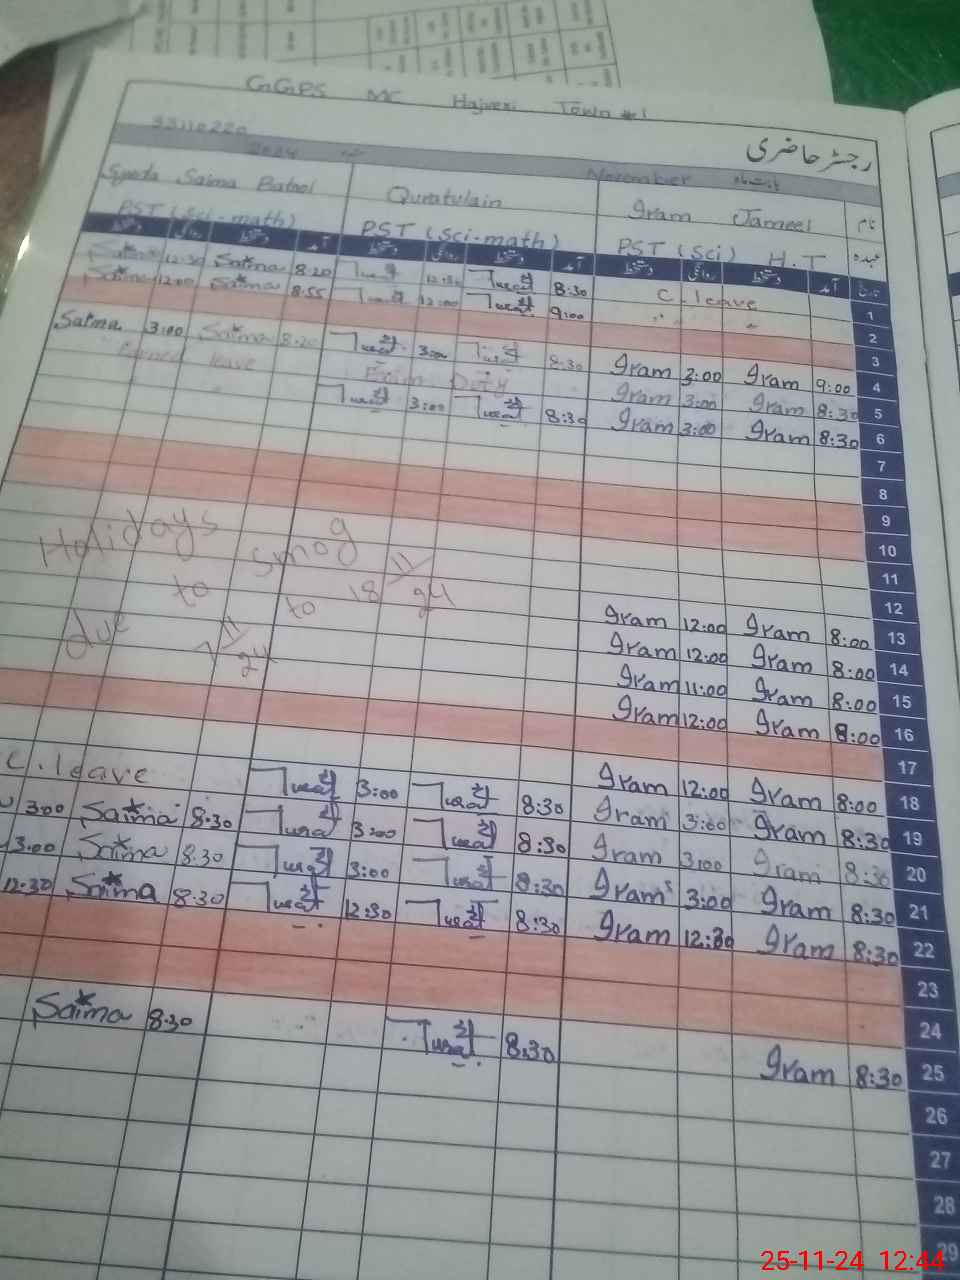 GGPS MC Hajveri Town #1
رجسٹر حاضری
33110220
2024 November بابت ماہ
Syeda Saima Batool Quratulain Iram Jameel نام
PST (sci-math) PST (sci-math) PST (Sci) H.T عہدہ
دستخط روانگی دستخط آمد دستخط روانگی دستخط آمد دستخط روانگی دستخط آمد تاریخ
Saima 12:30 Saima 8:20 12:30 8:30 C. leave 1
Saima 12:00 Saima 8:55 12:00 9:00 " " 2
3
Saima 3:00 Saima 8:20 3:00 8:30 Iram 3:00 Iram 9:00 4
Earned leave Exam Duty Iram 3:00 Iram 8:30 5
" " 3:00 8:30 Iram 3:00 Iram 8:30 6
7
8
9
10
11
12
Holidays smog 11
due to 7 11/24 to 18 11/24
Iram 12:00 Iram 8:00 13
Iram 12:00 Iram 8:00 14
Iram 11:00 Iram 8:00 15
Iram 12:00 Iram 8:00 16
17
C. leave 3:00 8:30 Iram 12:00 Iram 8:00 18
3:00 Saima 8:30 3:00 8:30 Iram 3:00 Iram 8:30 19
3:00 Saima 8:30 3:00 8:30 Iram 3:00 Iram 8:30 20
12:30 Saima 8:30 12:30 8:30 Iram 3:00 Iram 8:30 21
Iram 12:30 Iram 8:30 22
23
24
Saima 8:30 8:30 Iram 8:30 25
26
27
28
29
25-11-24 12:44